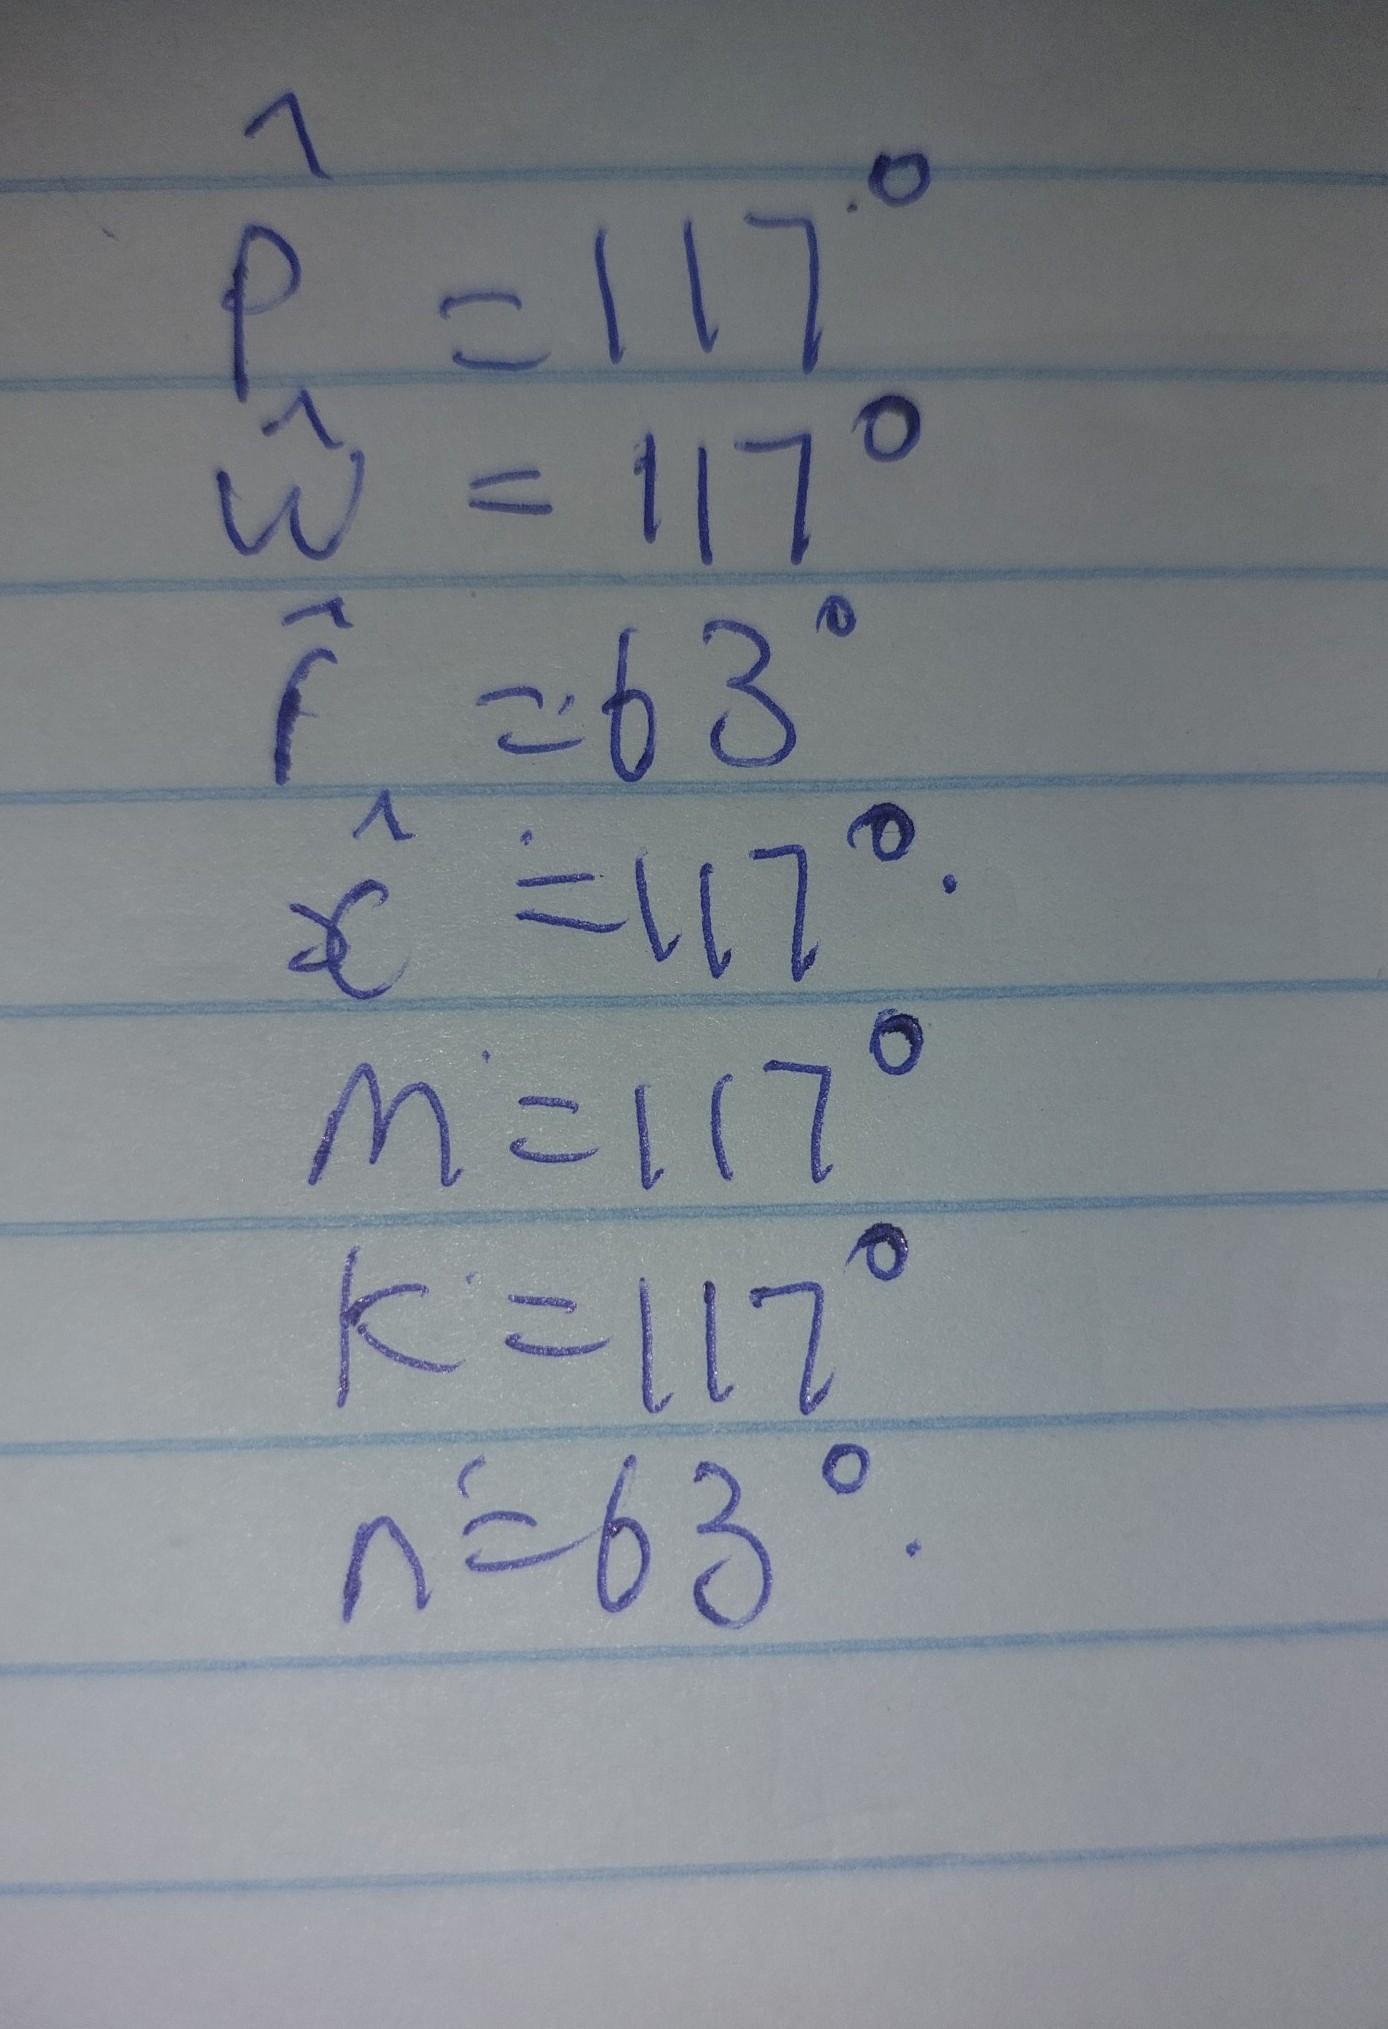 p̂ = 117°
ŵ = 117°
r̂ = 63°
x̂ = 117°.
m = 117°
k = 117°
n = 63°.